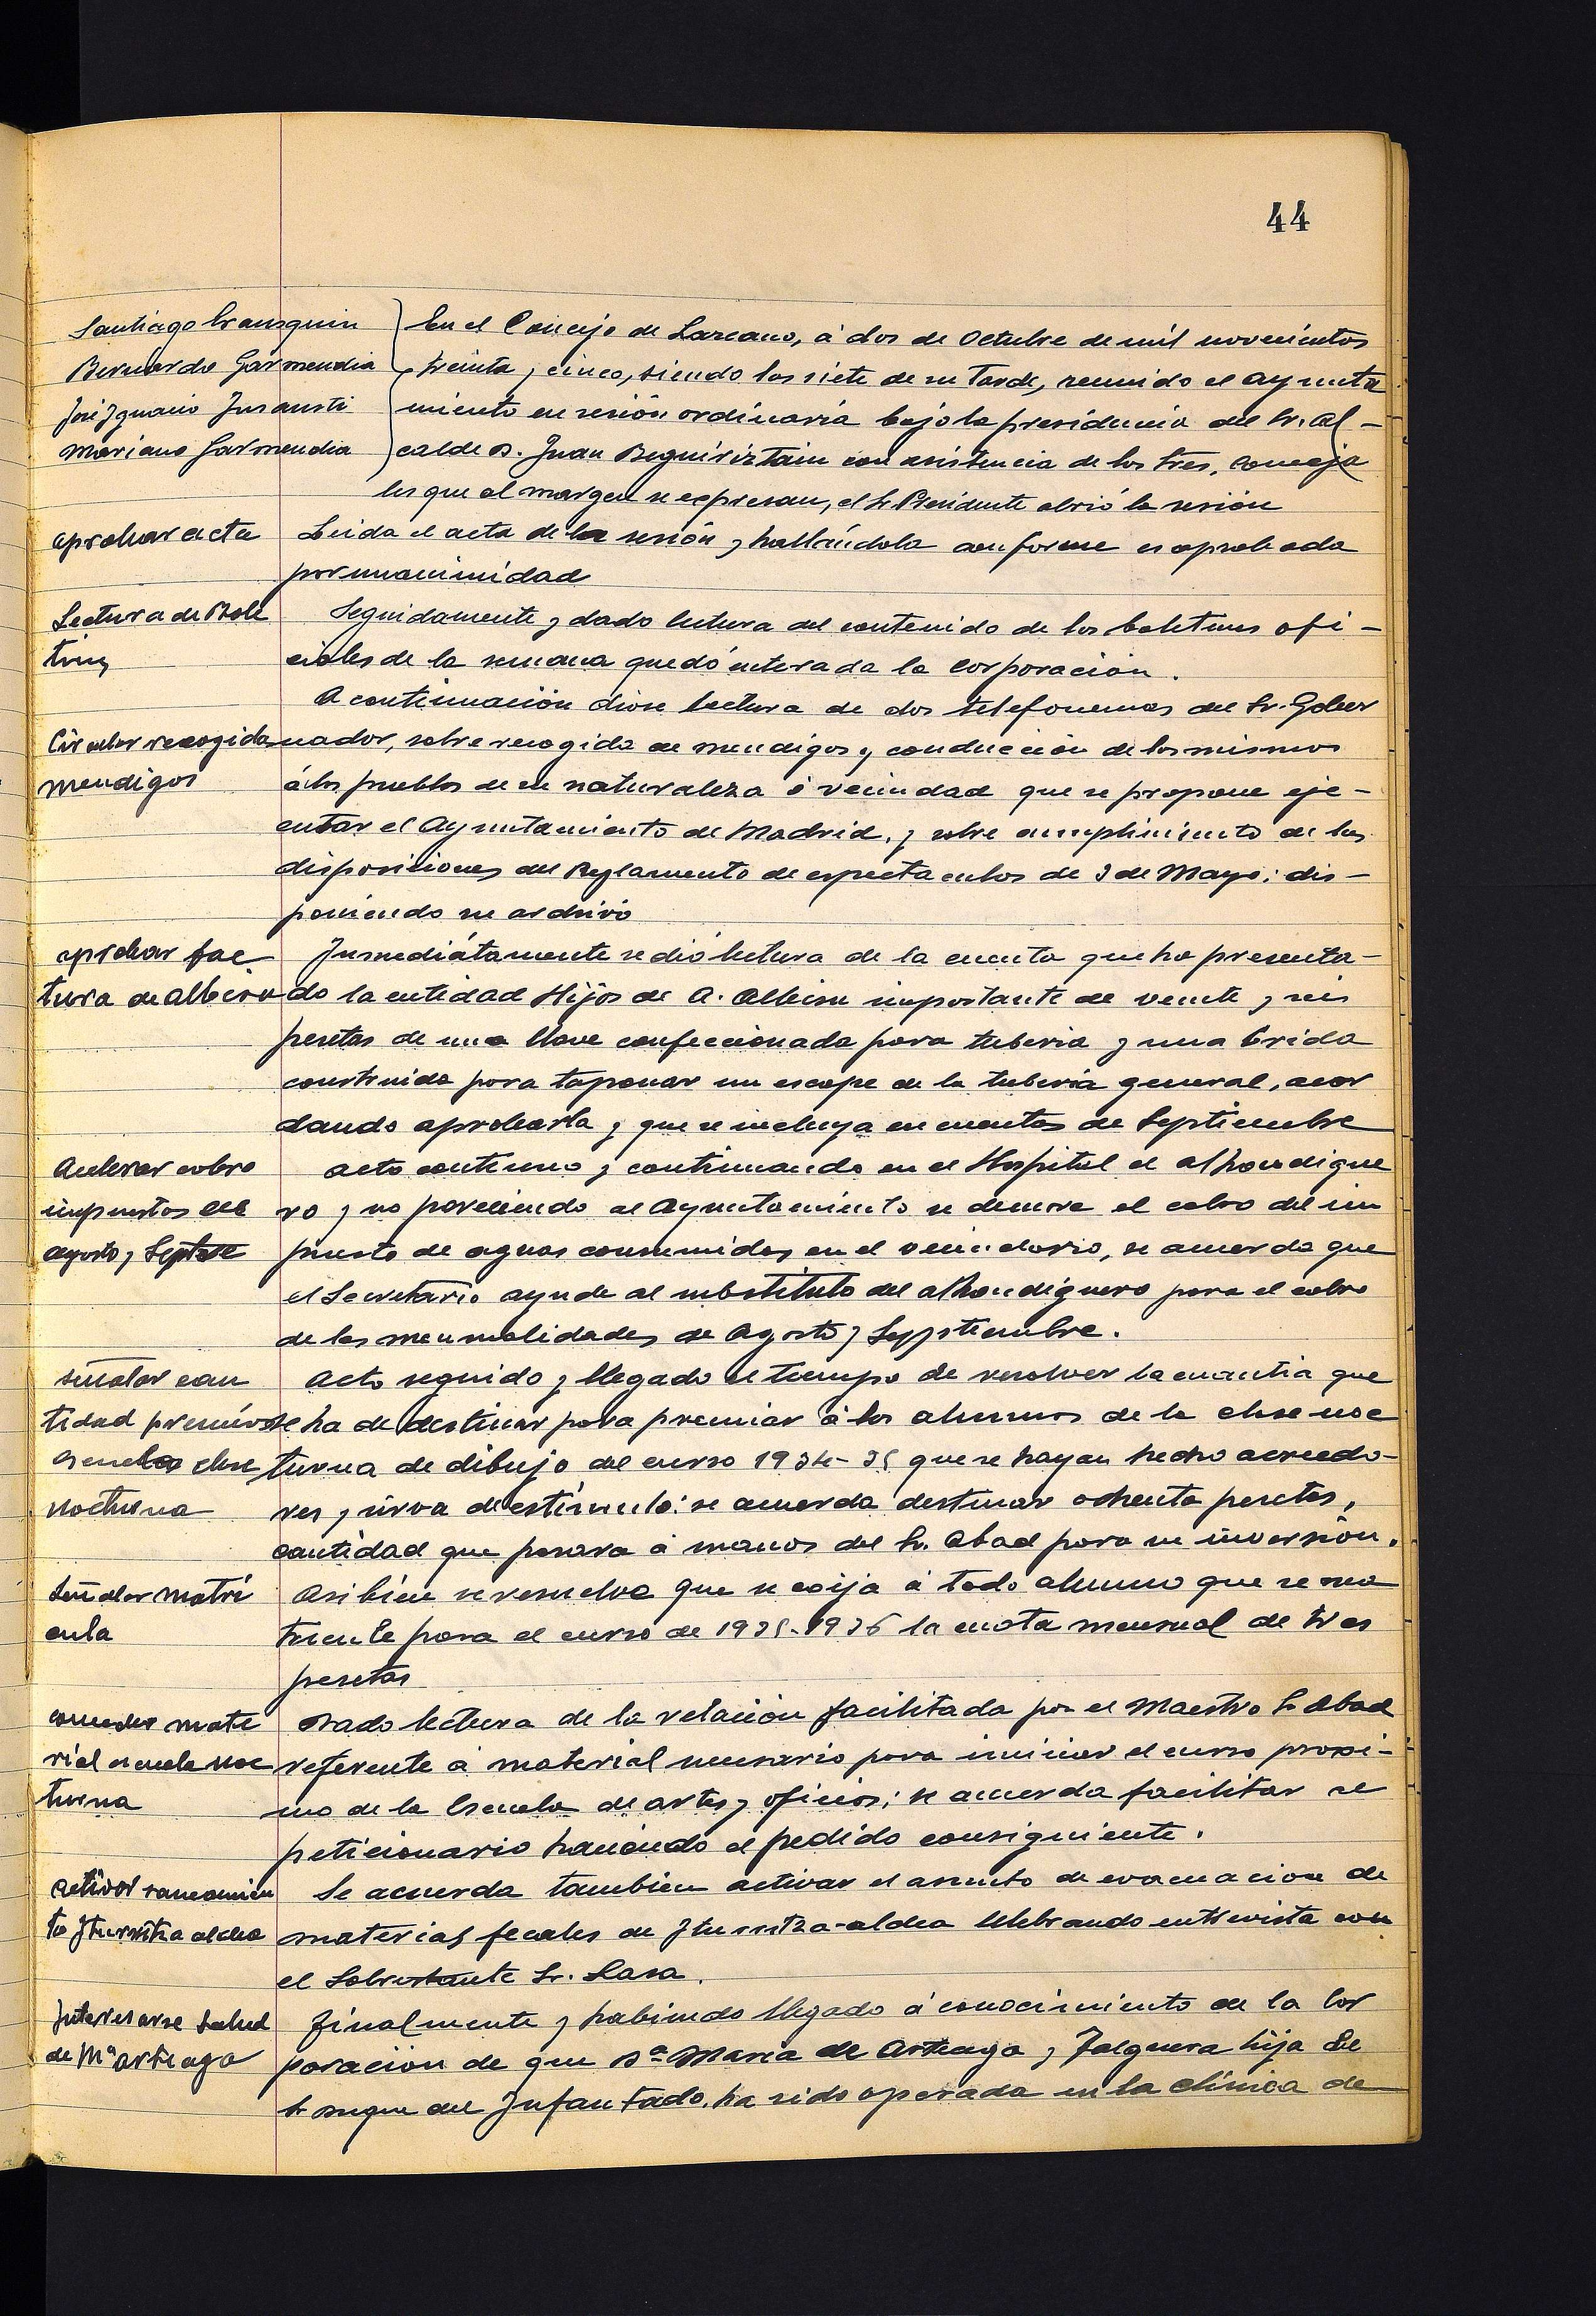 44
Santiago Iransquin
Bernardo Garmendia
José Ygnacio Jnsausti
Mariano Garmendia
En el Concejo de Lazcano, á dos de Octubre de mil novecientos
treinta y cinco, siendo las siete de su tarde, reunido el ayunta
miento en sesión ordinaria bajo la presidencia del Sr. Al-
calde D. Juan Beguiriztain con asistencia de los Sres. conceja
les que al margen se expresan, el Sr Presidente abrió la sesión
aprobar acta
Leida el acta de la sesión y hallándola conforme es aprobada
por unanimidad
Lectura de Bole
tines
Seguidamente y dado lectura del contenido de los boletines ofi-
ciales de la semana quedó enterada la corporación.
A continuación dióse lectura de dos telefonemas del Sr. Gober
Circular recogida
mendigos
nador, sobre recogida de mendigos y conducción de los mismos
á los pueblos de su naturaleza ó vecindad que se propone eje-
cutar el Ayuntamiento de Madrid, y sobre cumplimiento de las
disposiciones del Reglamento de espectaculos de 3 de Mayo: dis-
poniendo su archivo
aprobar fac
tura de albisu
Jnmediátamente se dió lectura de la cuenta que ha presenta-
do la entidad Hijos de A. Albisu importante de veinte y seis
pesetas de una llave confeccionada para tuberia y una brida
construida para taponar un escape de la tuberia general, acor
dando aprobarla y que se incluya en cuentas de Septiembre
Acelerar cobro
impuestos de
agosto y Septbre
acto continuo y continuando en el Hospital el alhondigue
ro y no pareciendo al Ayuntamiento se demore el cobro del im
puesto de aguas consumidas en el vecindario, se acuerda que
el Secretario ayude al substituto del alhondiguero para el cobro
de las mensualidades de Agosto y Sepptiembre.
señalar can
tidad premios
escuela clase
nocturna
Acto seguido y llegado el tiempo de resolver la cuantia que
se ha de destinar para premiar á los alumnos de la clase noc
turna de dibujo del curso 1934-35 que se hayan hecho acreedo-
res y sirva de estímulo: se acuerda destinar ochenta pesetas,
cantidad que pasara á manos del Sr. Abad para su inversión.
Señalar matri
cula
Asi bien se resuelve que se exija á todo alumno que se ma
tricule para el curso de 1935-1936 la cuota mensual de tres
pesetas
conceder mate
rial escuela noc
turna
Dado lectura de la relación facilitada por el Maestro Sr Abad
referente á material necesario para iniciar el curso proxi-
mo de la Escuela de artes y oficios; se acuerda facilitar al
peticionario haciendo el pedido consiguiente.
activar saneamien
to Jturritza aldea
Se acuerda tambien activar el asunto de evacuacion de
materias fecales de Jturritza-aldea celebrando entrevista con
el Sobrestante Sr. Lasa.
Jnteresarse Salud
de Mª arteaga
Finalmente y habiendo llegado á conocimiento de la cor
poracion de que Dª Maria de Arteaga y Falguera hija del
Sr Duque del Jnfantado, ha sido operada en la clínica de